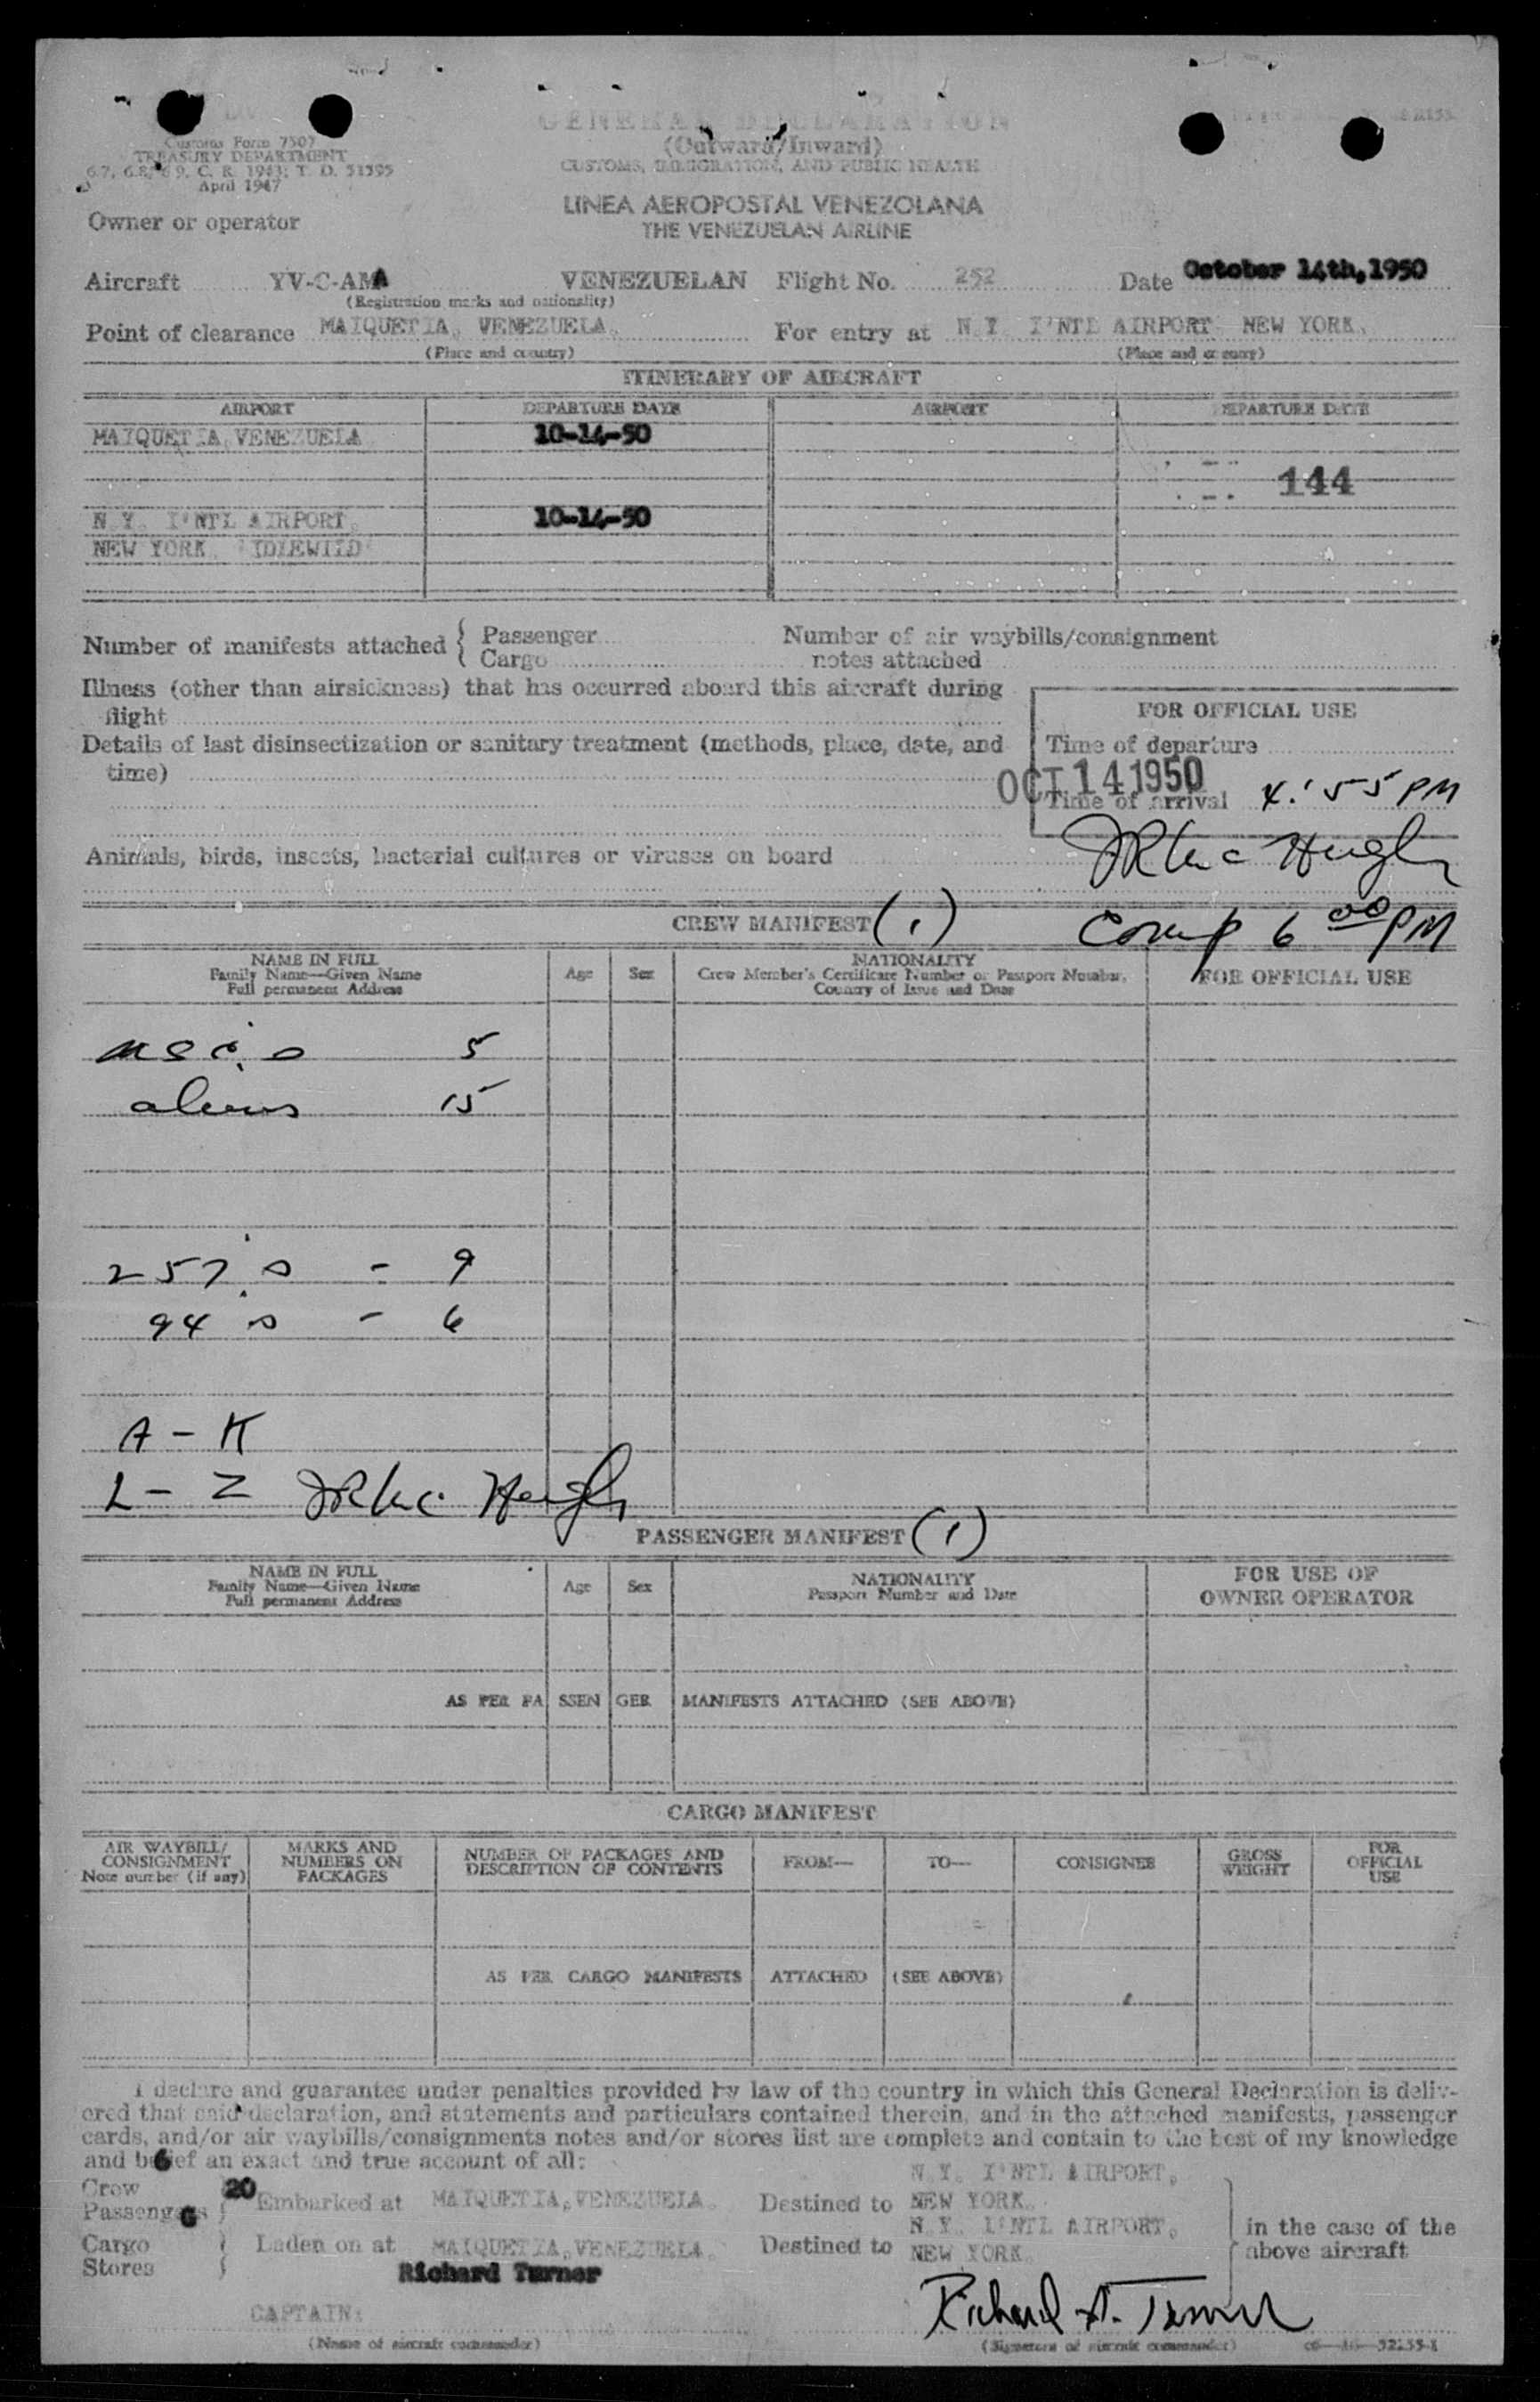 Customs Form 7507
TREASURY DEPARTMENT
April 1947
GENERAL DECLARATION
(Outward/Inward)
CUSTOMS, IMMIGRATION, AND PUBLIC HEALTH
LINEA AEROPOSTAL VENEZOLANA
THE VENEZUELAN AIRLINE
Owner or operator
Aircraft YV-C-AMA VENEZUELAN Flight No. 252 Date October 14th,1950
(Registration marks and nationality)
Point of clearance MAIQUETIA, VENEZUELA. For entry at N.Y. I'NTL AIRPORT, NEW YORK.
(Place and country) (Place and country)
ITINERARY OF AIRCRAFT
AIRPORT DEPARTURE DATE AIRPORT DEPARTURE DATE
MAIQUETIA, VENEZUELA 10-14-50
144
N.Y. I'NTL AIRPORT, 10-14-50
NEW YORK "IDLEWILD"
Number of manifests attached { Passenger Number of air waybills/consignment
Cargo notes attached
Illness (other than airsickness) that has occurred aboard this aircraft during
flight
FOR OFFICIAL USE
Details of last disinsectization or sanitary treatment (methods, place, date, and
time)
Time of departure
OCT 14 1950
Time of arrival 4:55 PM
Animals, birds, insects, bacterial cultures or viruses on board
CREW MANIFEST (1) Comp 6 00 PM
NAME IN FULL
Family Name—Given Name
Full permanent Address
Age Sex
NATIONALITY
Crew Member's Certificate Number or Passport Number,
Country of Issue and Date
FOR OFFICIAL USE
5
aliens 15
257's - 9
94's - 6
A - K
L - Z
PASSENGER MANIFEST (1)
NAME IN FULL
Family Name—Given Name
Full permanent Address
Age Sex
NATIONALITY
Passport Number and Date
FOR USE OF
OWNER OPERATOR
AS PER PASSENGER MANIFESTS ATTACHED (SEE ABOVE)
CARGO MANIFEST
AIR WAYBILL/
CONSIGNMENT
Note number (if any)
MARKS AND
NUMBERS ON
PACKAGES
NUMBER OF PACKAGES AND
DESCRIPTION OF CONTENTS
FROM— TO— CONSIGNEE
GROSS
WEIGHT
FOR
OFFICIAL
USE
AS PER CARGO MANIFESTS ATTACHED (SEE ABOVE)
I declare and guarantee under penalties provided by law of the country in which this General Declaration is deliv-
ered that said declaration, and statements and particulars contained therein, and in the attached manifests, passenger
cards, and/or air waybills/consignments notes and/or stores list are complete and contain to the best of my knowledge
and belief an exact and true account of all:
Crew 6
Passengers 20 Embarked at MAIQUETIA, VENEZUELA. Destined to N.Y. I'NTL AIRPORT, NEW YORK.
Cargo
Stores Laden on at MAIQUETIA, VENEZUELA. Destined to N.Y. I'NTL AIRPORT, NEW YORK.
in the case of the
above aircraft
Richard Turner
CAPTAIN:
Richard A. Turner
(Name of aircraft commander) (Signature of aircraft commander)